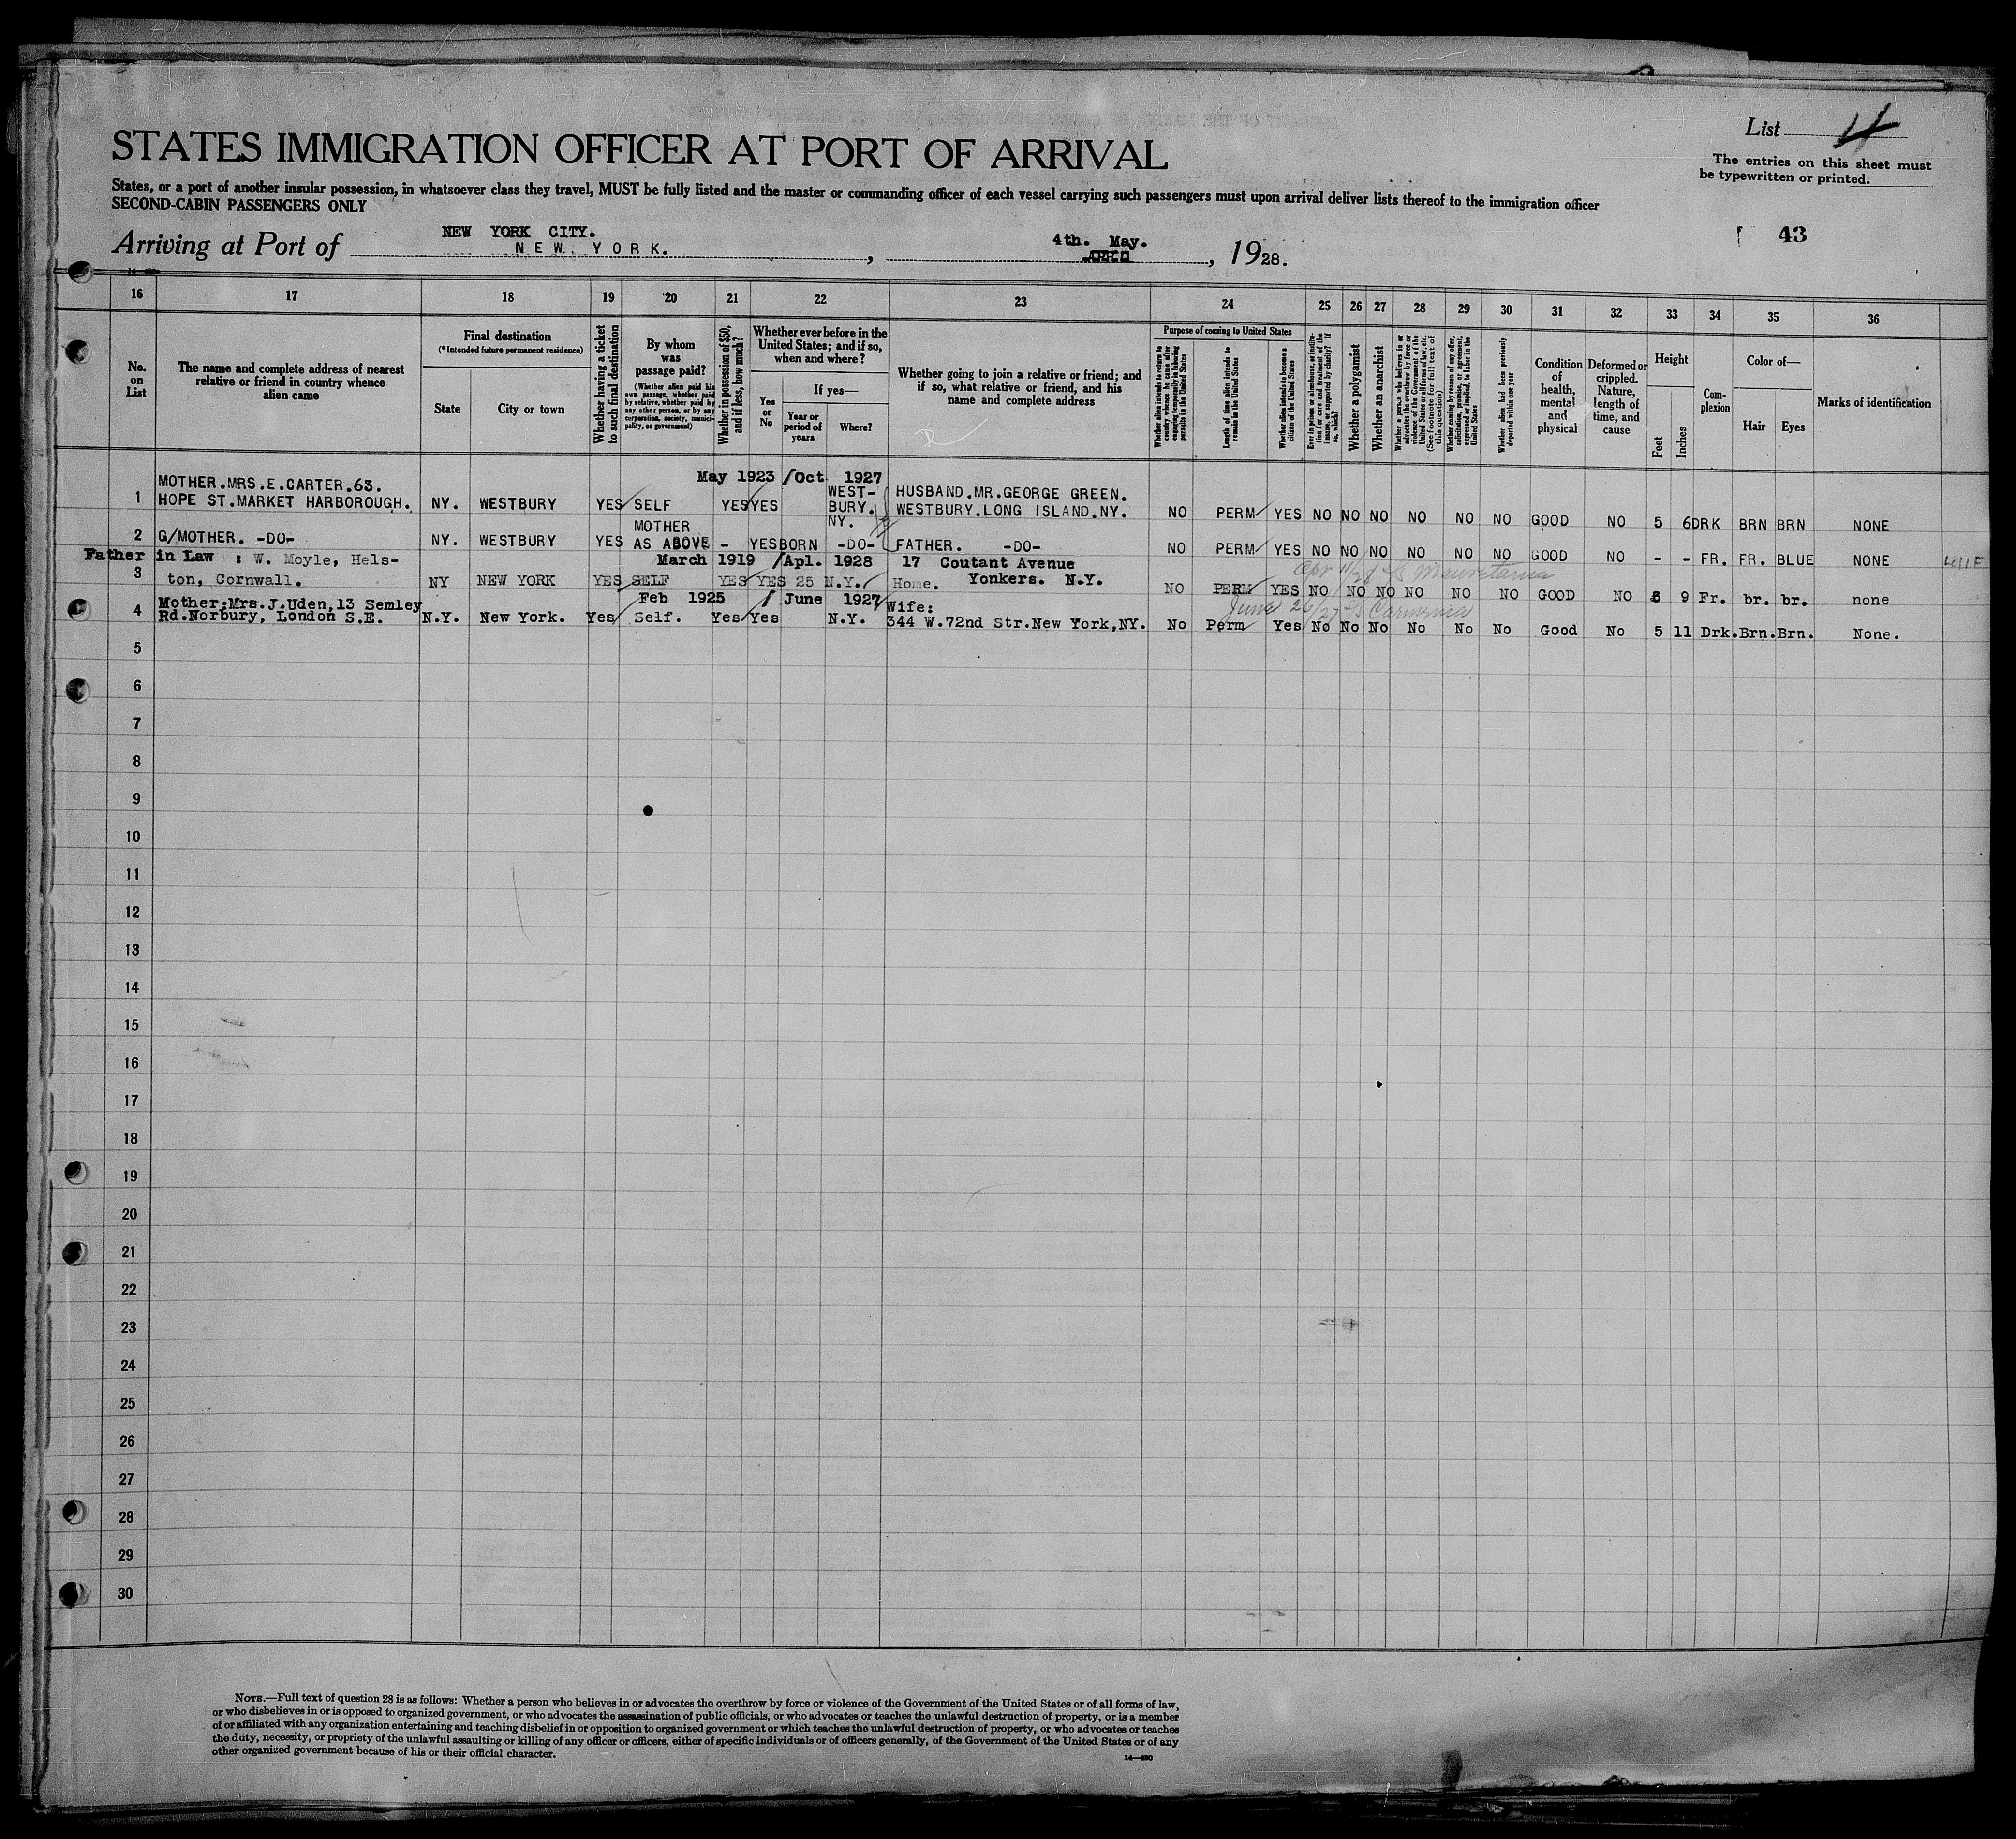 List 4
STATES IMMIGRATION OFFICER AT PORT OF ARRIVAL
The entries on this sheet must
be typewritten or printed.
States, or a port of another insular possession, in whatsoever class they travel, MUST be fully listed and the master or commanding officer of each vessel carrying such passengers must upon arrival deliver lists thereof to the immigration officer
SECOND-CABIN PASSENGERS ONLY
43
NEW YORK CITY.
Arriving at Port of NEW YORK. , 4th. May. , 1928.
16 17 18 19 20 21 22 23 24 25 26 27 28 29 30 31 32 33 34 35 36
No. on List
The name and complete address of nearest relative or friend in country whence alien came
Final destination
(*Intended future permanent residence)
State
City or town
Whether having a ticket to such final destination
By whom was passage paid?
(Whether alien paid his own passage, whether paid by relative, whether paid by any other person, or by any corporation, society, municipality, or government)
Whether in possession of $50, and if less, how much?
Whether ever before in the United States; and if so, when and where?
Yes or No
If yes—
Year or period of years
Where?
Whether going to join a relative or friend; and if so, what relative or friend, and his name and complete address
Purpose of coming to United States
Whether alien intends to return to country whence he came after engaging temporarily in laboring pursuits in the United States
Length of time alien intends to remain in the United States
Whether alien intends to become a citizen of the United States
Ever in prison or almshouse, or institution for care and treatment of the insane, or supported by charity? If so, which?
Whether a polygamist
Whether an anarchist
Whether a person who believes in or advocates the overthrow by force or violence of the Government of the United States or all forms of law, etc. (See footnote for full text of this question)
Whether coming by reason of any offer, solicitation, promise, or agreement, expressed or implied, to labor in the United States
Whether alien had been previously deported within one year
Condition of health, mental and physical
Deformed or crippled. Nature, length of time, and cause
Height
Feet
Inches
Complexion
Color of—
Hair
Eyes
Marks of identification
May 1923 /Oct 1927
1 MOTHER.MRS.E.CARTER.63.
HOPE ST.MARKET HARBOROUGH. NY. WESTBURY YES SELF YES YES WEST-BURY. NY. HUSBAND.MR.GEORGE GREEN.
WESTBURY.LONG ISLAND.NY. NO PERM YES NO NO NO NO NO NO GOOD NO 5 6 DRK BRN BRN NONE
2 G/MOTHER. -DO- NY. WESTBURY YES MOTHER AS ABOVE - YES BORN -DO- FATHER. -DO- NO PERM YES NO NO NO NO NO NO GOOD NO - - FR. FR. BLUE NONE
March 1919 /Apl. 1928 17 Coutant Avenue
Apr 11/28 SS Mauretania
3 Father in Law : W. Moyle, Hels-
ton, Cornwall. NY NEW YORK YES SELF YES YES 25 N.Y. Home. Yonkers. N.Y. NO PERM YES NO NO NO NO NO NO GOOD NO 5 9 Fr. br. br. none
Feb 1925 / June 1927
June 26/27 SS Carmania
4 Mother:Mrs.J.Uden,13 Semley
Rd.Norbury, London S.E. N.Y. New York. Yes Self. Yes Yes N.Y. Wife:
344 W.72nd Str.New York,NY. No Perm Yes No No No No No No Good No 5 11 Drk. Brn. Brn. None.
5
6
7
8
9
10
11
12
13
14
15
16
17
18
19
20
21
22
23
24
25
26
27
28
29
30
NOTE.—Full text of question 28 is as follows: Whether a person who believes in or advocates the overthrow by force or violence of the Government of the United States or of all forms of law,
or who disbelieves in or is opposed to organized government, or who advocates the assassination of public officials, or who advocates or teaches the unlawful destruction of property, or is a member
of or affiliated with any organization entertaining and teaching disbelief in or opposition to organized government or which teaches the unlawful destruction of property, or who advocates or teaches
the duty, necessity, or propriety of the unlawful assaulting or killing of any officer or officers, either of specific individuals or of officers generally, of the Government of the United States or of any
other organized government because of his or their official character.
14—480